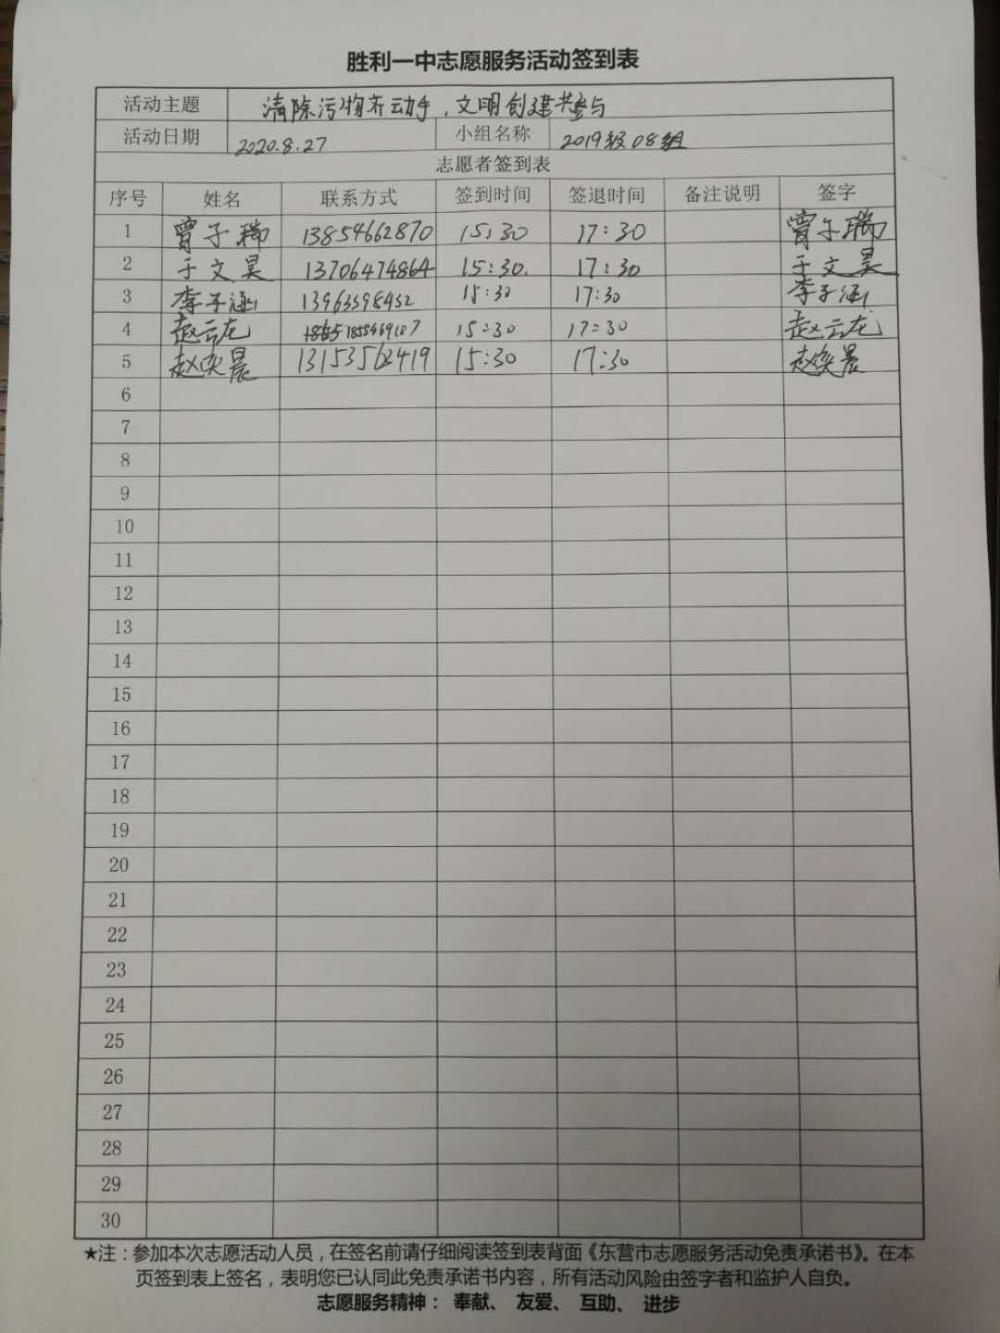 胜利一中志愿服务活动签到表
活动主题 清除污物齐动手，文明创建共参与
活动日期 2020.8.27 小组名称 2019级08组
志愿者签到表
序号 姓名 联系方式 签到时间 签退时间 备注说明 签字
1 曾子瑞 13854662870 15:30 17:30 曾子瑞
2 于文昊 13706474864 15:30. 17:30 于文昊
3 李子涵 13963398452 15:30 17:30 李子涵
4 赵云龙 15:30 17:30 赵云龙
5 赵奕晨 13153562419 15:30 17:30 赵奕晨
6
7
8
9
10
11
12
13
14
15
16
17
18
19
20
21
22
23
24
25
26
27
28
29
30
★注：参加本次志愿活动人员，在签名前请仔细阅读签到表背面《东营市志愿服务活动免责承诺书》。在本
页签到表上签名，表明您已认同此免责承诺书内容，所有活动风险由签字者和监护人自负。
志愿服务精神： 奉献、 友爱、 互助、 进步